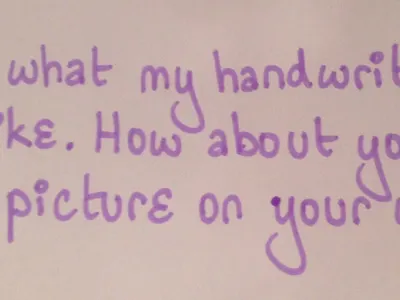 what my handwrit
ke. How about yo
picture on your